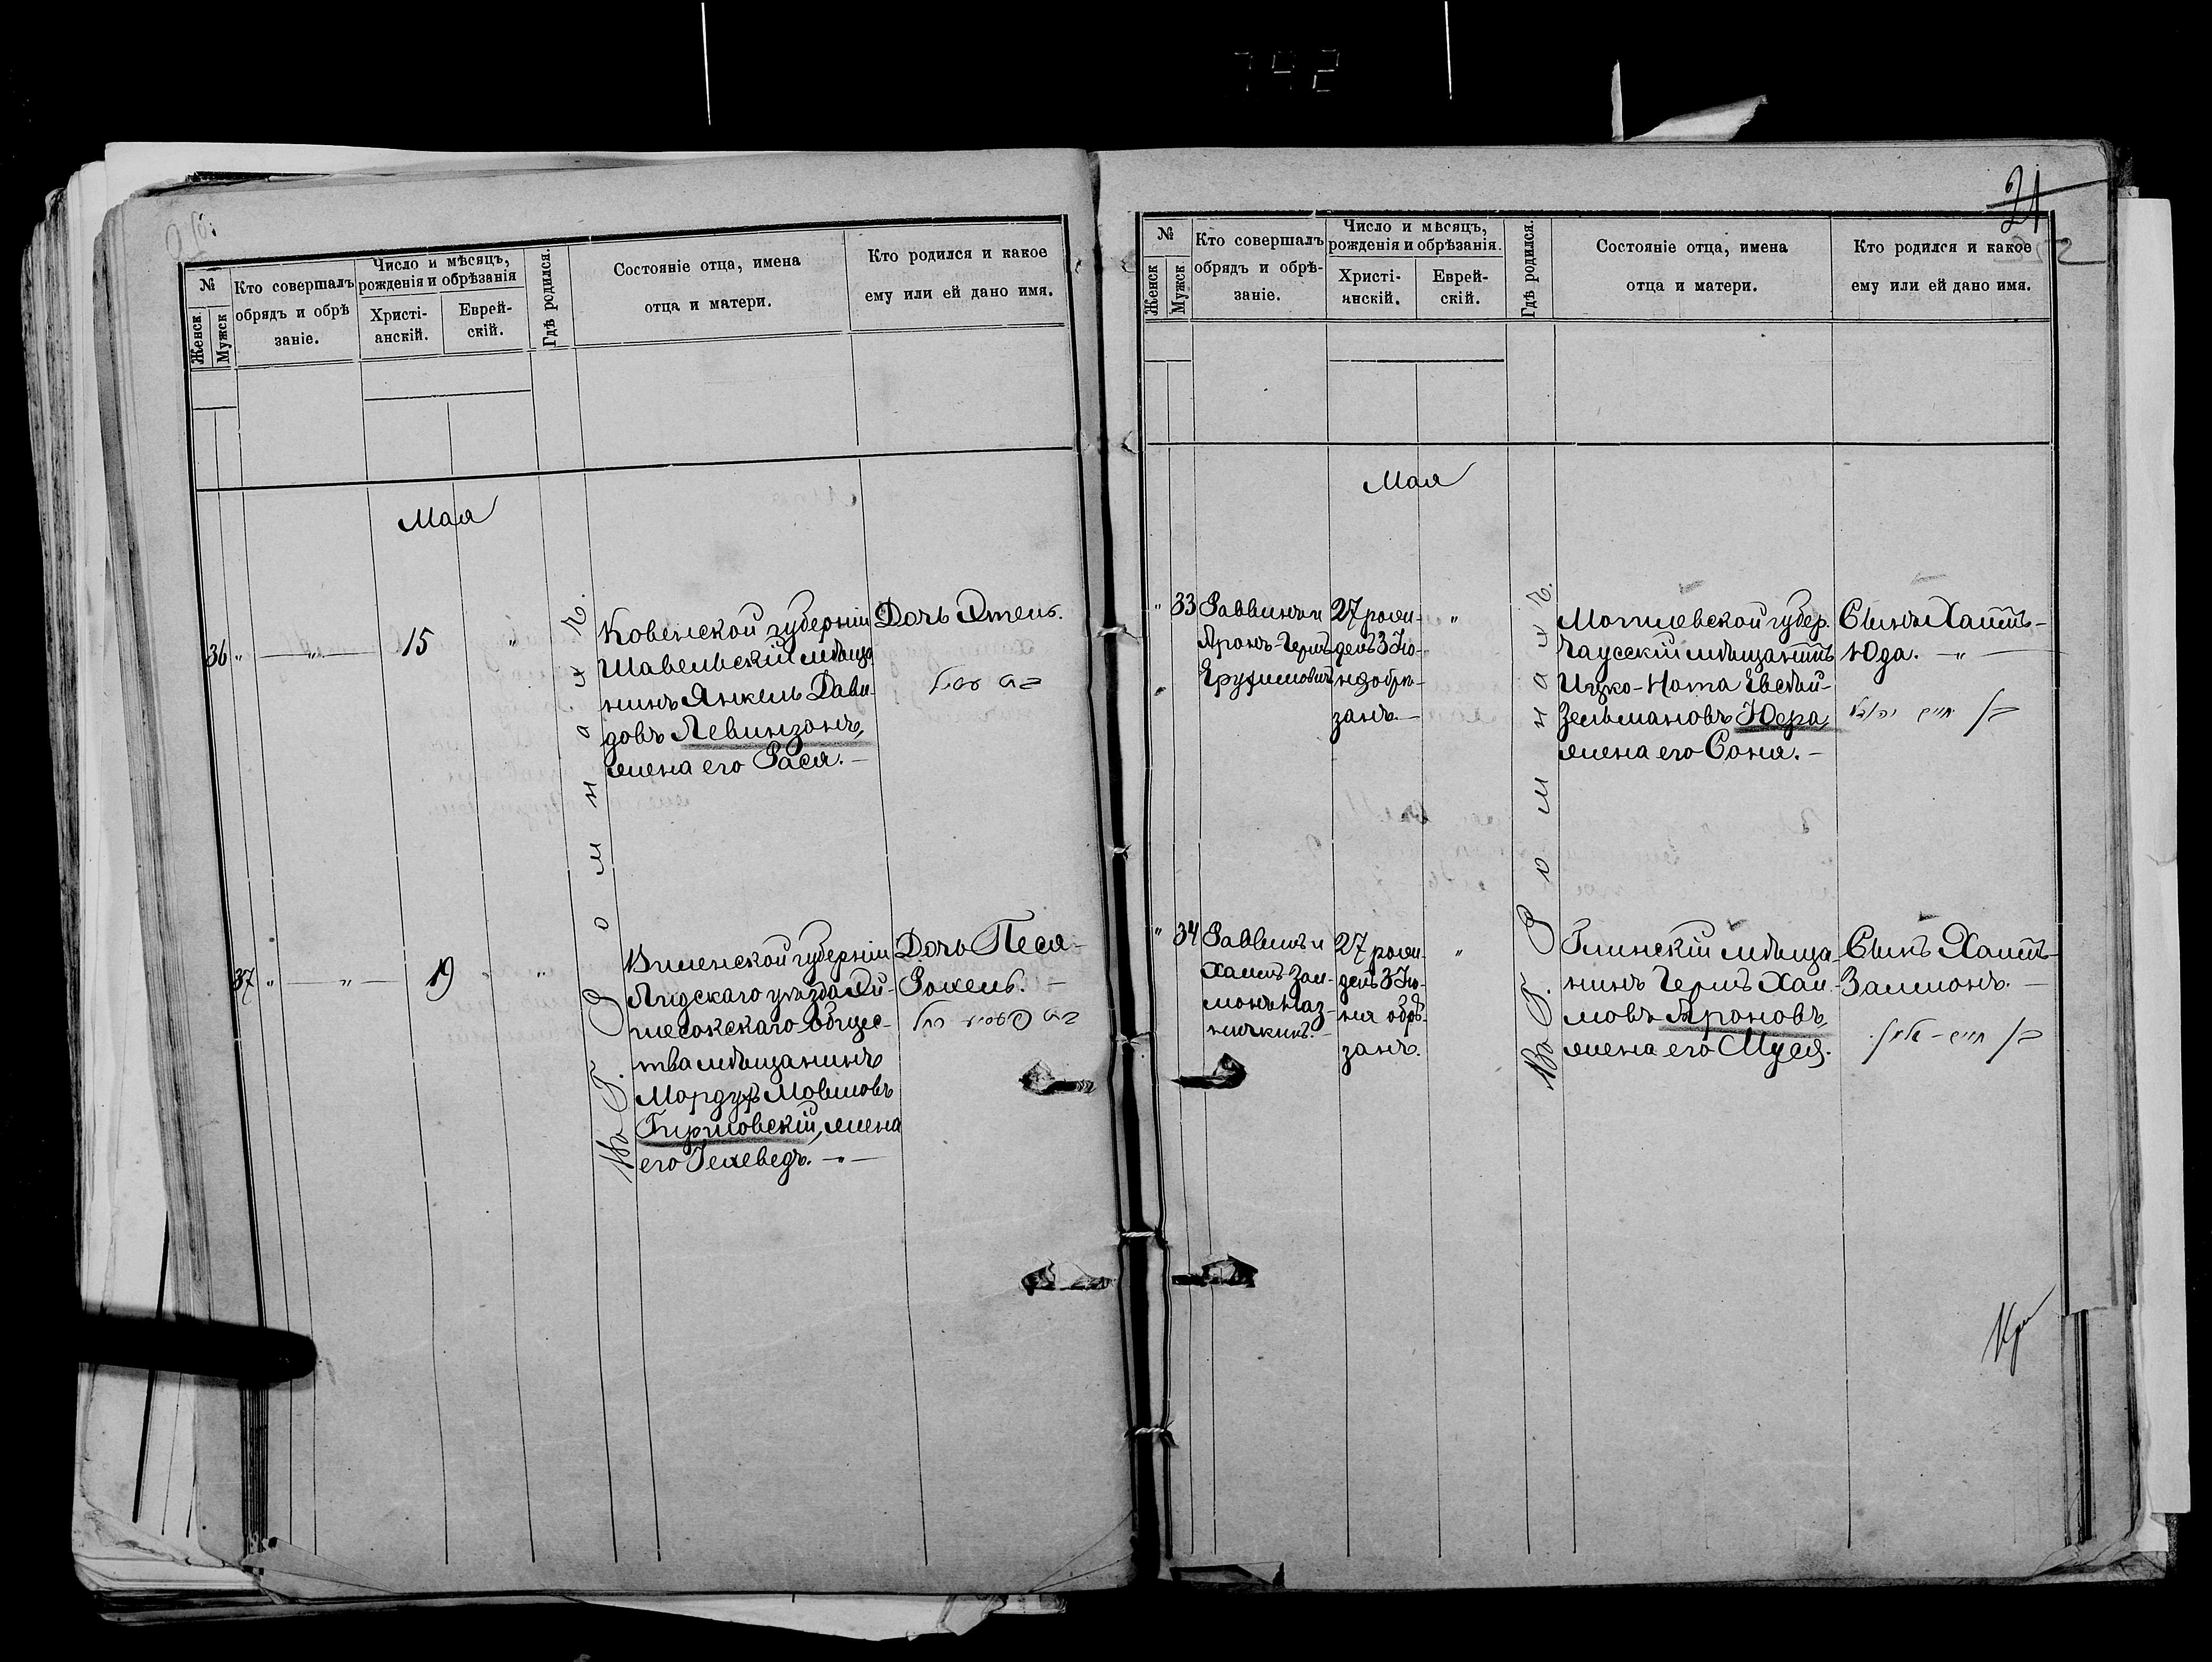 792
№
Женск.
Мужск
Кто совершалъ
обрядъ и обрѣ
заніе.
Число и мѣсяцъ,
рожденія и обрѣзанія
Христі-
анскій.
Еврей-
скій.
Гдѣ родился.
Состояніе отца, имена
отца и матери.
Кто родился и какое
ему или ей дано имя.
Мая
36 " — " — 15 "
Ковенской губерніи
Шавельскій мѣща
нинъ Янкель Дави-
довъ Левинзонъ,
жена его Рася. —
Дочь Этель.
Въ Г. Ромнахъ.
37 " — " — 19 "
Виленской губерніи
Лидскаго уѣзда Эй-
шесокскаго общес-
тва мѣщанинъ
Мордухъ Мовшовъ
Гиршовскій, жена
его Іехеведъ. —
Дочь Песя-
Рохель. —
21
№
Женск
Мужск
Кто совершалъ
обрядъ и обрѣ-
заніе.
Число и мѣсяцъ,
рожденія и обрѣзанія.
Христі-
анскій.
Еврей-
скій.
Гдѣ родился.
Состояніе отца, имена
отца и матери.
Кто родился и какое
ему или ей дано имя.
Мая
" 33
Раввинъ и
Аронъ-Герш
27 рожи-
денъ 3 Iю-
ня обрѣ-
занъ. —
"
Въ Г. Ромнахъ.
Могилевской губер.
Чаусскій мѣщанинъ
Ицко-Нота
Зельмановъ
жена его Соня. —
Сынъ Хаимъ-
Юда. — " —
בן חיים יהודא
" 34
Раввинъ и
Хаимъ Зал-
монъ Маз-
27 рожи-
денъ 3 Iю-
ня обрѣ-
занъ.
"
Глинскій мѣща-
нинъ Гершъ Хаи-
мовъ Ароновъ,
жена его Муся.
Сынъ Хаимъ-
Залмонъ. —
בן חיים - זלמן.